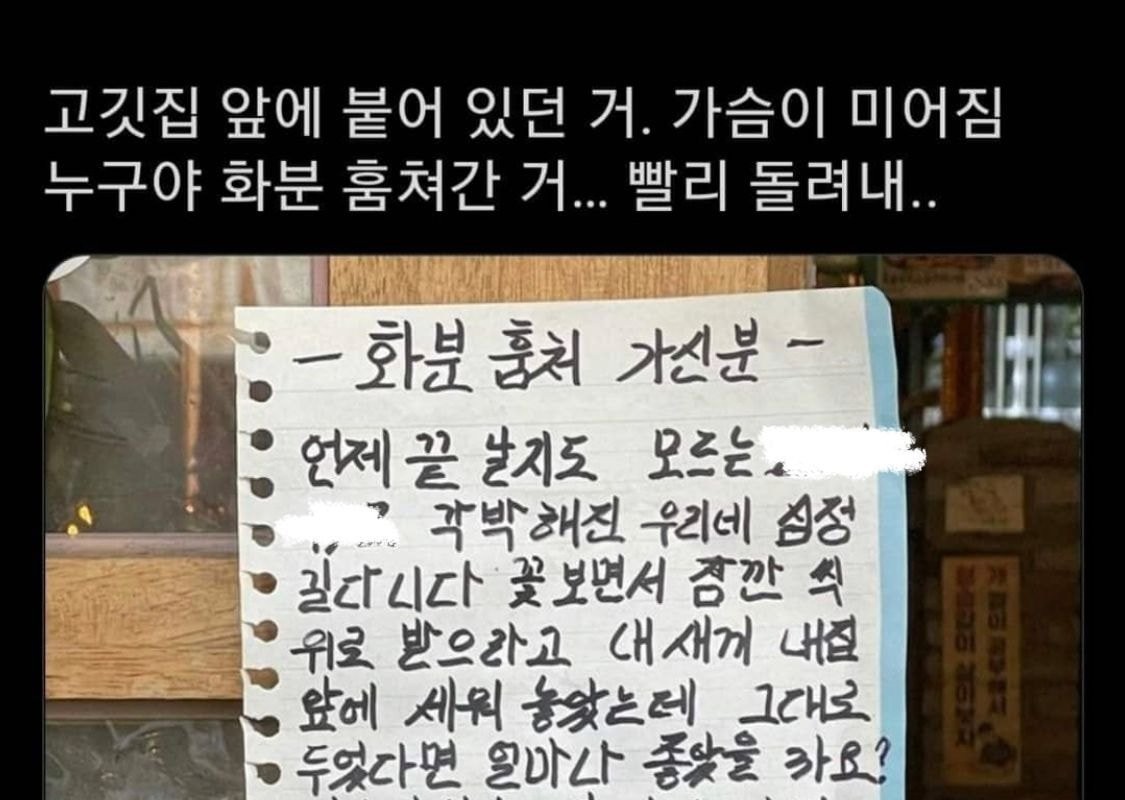 고깃집 앞에 붙어 있던 거. 가슴이 미어짐
누구야 화분 훔쳐간 거... 빨리 돌려내..
- 화분 훔쳐 가신분 -
언제 끝 날지도 모르는
각박해진 우리네 심정
길다니다 꽃보면서 잠깐 씩
위로 받으라고 내새끼 내집
앞에 세워 놓았는데 그대로
두었다면 얼마나 좋았을 까요?